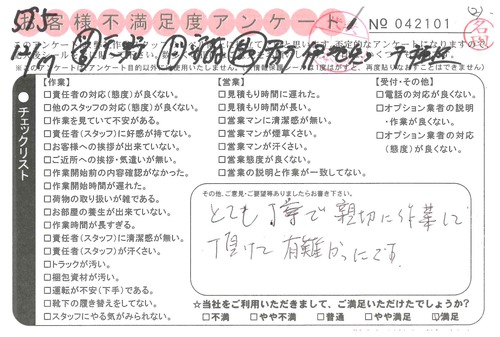 お客様不満足度アンケート
№ 042101
●チェックリスト
【作業】
□責任者の対応(態度)が良くない。
□他のスタッフの対応(態度)が良くない。
□作業を見ていて不安がある。
□責任者(スタッフ)に好感が持てない。
□お客様への挨拶が出来ていない。
□ご近所への挨拶・気遣いが無い。
□作業開始前の内容確認がなかった。
□作業開始時間が遅れた。
□荷物の取り扱いが雑である。
□お部屋の養生が出来ていない。
□作業時間が長すぎる。
□責任者(スタッフ)に清潔感が無い。
□責任者(スタッフ)が汗くさい。
□トラックが汚い。
□梱包資材が汚い。
□運転が不安(下手)である。
□靴下の履き替えをしてない。
□スタッフにやる気がみられない。
【営業】
□見積もり時間に遅れた。
□見積もり時間が長い。
□営業マンに清潔感が無い。
□営業マンが煙草くさい。
□営業マンが汗くさい。
□営業態度が良くない。
□営業の説明と作業が一致してない。
【受付・その他】
□電話の対応が良くない。
□オプション業者の説明
・作業が良くない。
□オプション業者の対応
(態度)が良くない。
その他、ご意見・ご要望等ありましたらお書き下さい。
とても丁寧で親切に作業して
頂けて有難かったです。
☆当社をご利用いただきまして、ご満足いただけたでしょうか?
□不満 □やや不満 □普通 □やや満足 ☑満足